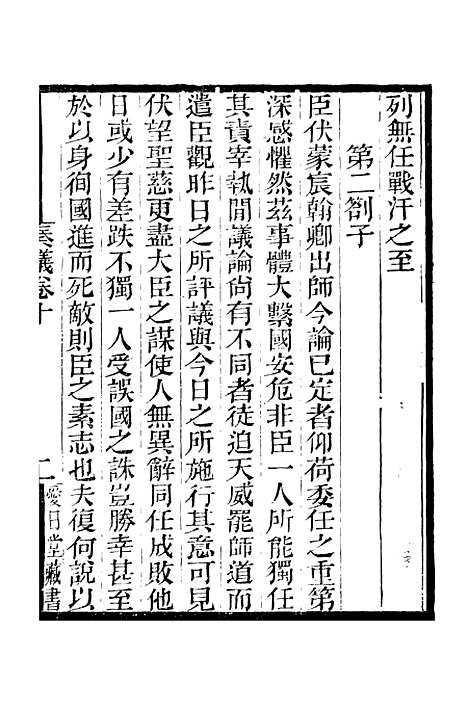 列無任戰汗之至
第二劄子
臣伏蒙宸翰卿出師今論已定者仰荷委任之重第
深感懼然茲事體大繫國安危非臣一人所能獨任
其責宰執閒議論尚有不同者徒迫天威罷師道而
遣臣觀昨日之所評議與今日之所施行其意可見
伏望聖慈更盡大臣之謀使人無異辭同任成敗他
日或少有差跌不獨一人受誤國之誅豈勝幸甚至
於以身徇國進而死敵則臣之素志也夫復何說以
奏議卷十
二
愛日堂藏書